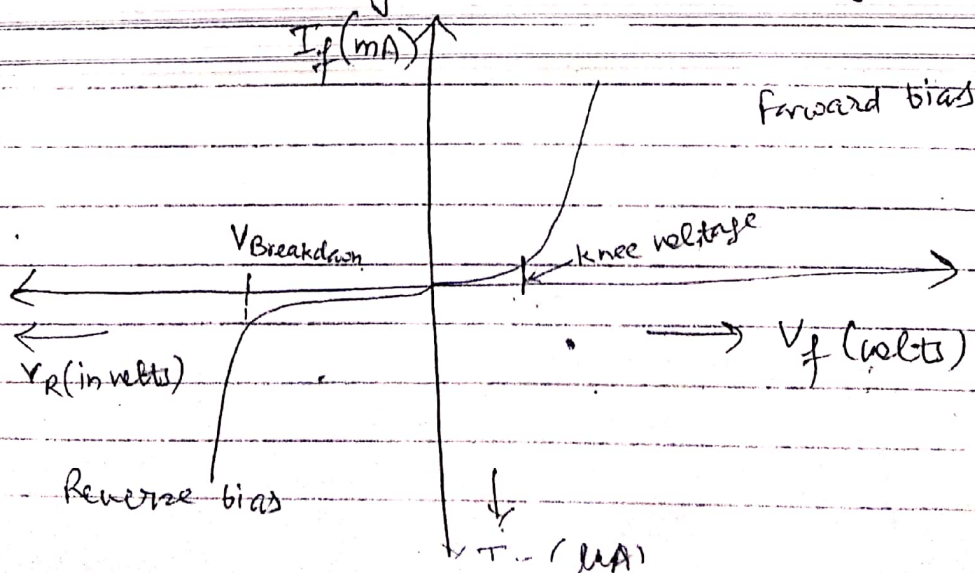 I_f (mA)
Forward bias
V_Breakdown
knee voltage
V_f (volts)
V_R (in volts)
Reverse bias
(μA)